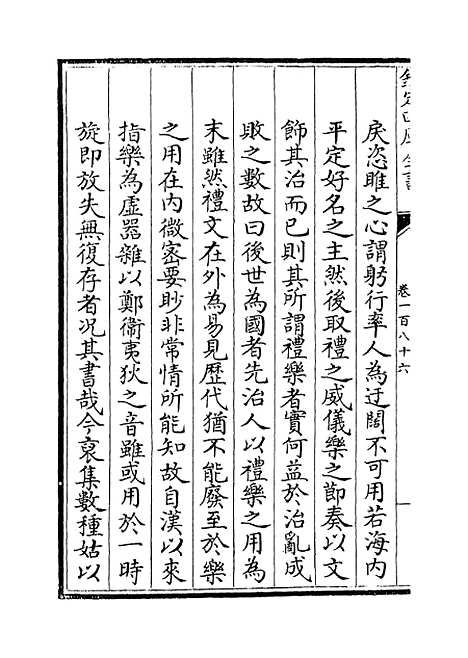 欽定四庫全書
卷一百八十六
戾恣睢之心謂躬行率人為迂闊不可用若海内
平定好名之主然後取禮之威儀樂之節奏以文
飾其治而已則其所謂禮樂者實何益於治亂成
敗之數故曰後世為國者先治人以禮樂之用為
末雖然禮文在外為易見歴代猶不能廢至於樂
之用在内微宻要眇非常情所能知故自漢以來
指樂為虛器雜以鄭衞夷狄之音雖或用於一時
旋即放失無復存者况其書哉今裒集數種姑以